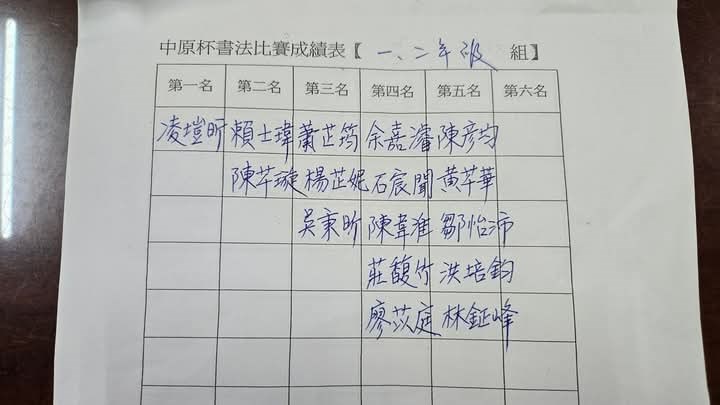 中原杯書法比賽成績表【一、二年級 組】
第一名 第二名 第三名 第四名 第五名 第六名
凌塏昕 賴士瑋 蕭芷筠 余嘉濬 陳彦均
陳芊璇 楊芷妮 石宸聞 黃芊華
吳秉昕 陳韋淮 鄒怡沛
莊馥竹 洪培鈞
廖苡庭 林鉦峰